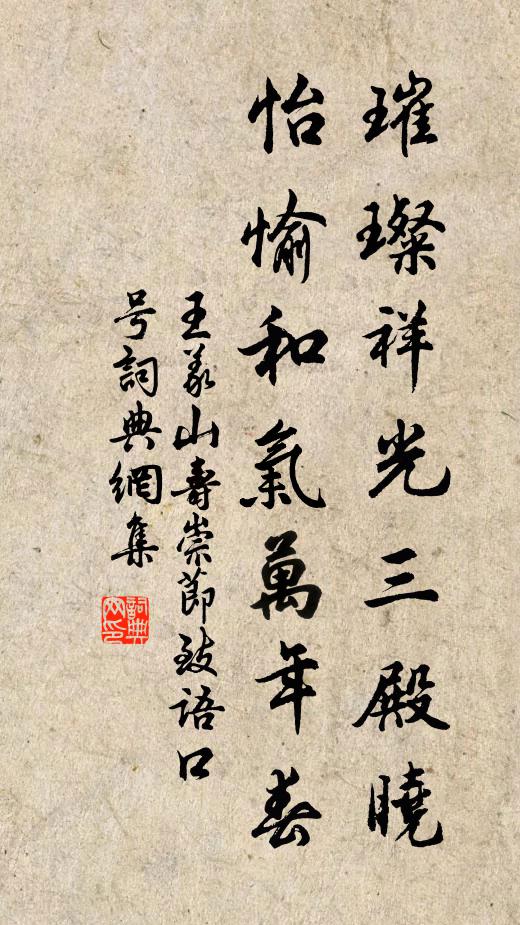 璀璨祥光三殿曉
怡愉和氣萬年春
王義山壽崇節致語口
号詞典網集
詞典
网印